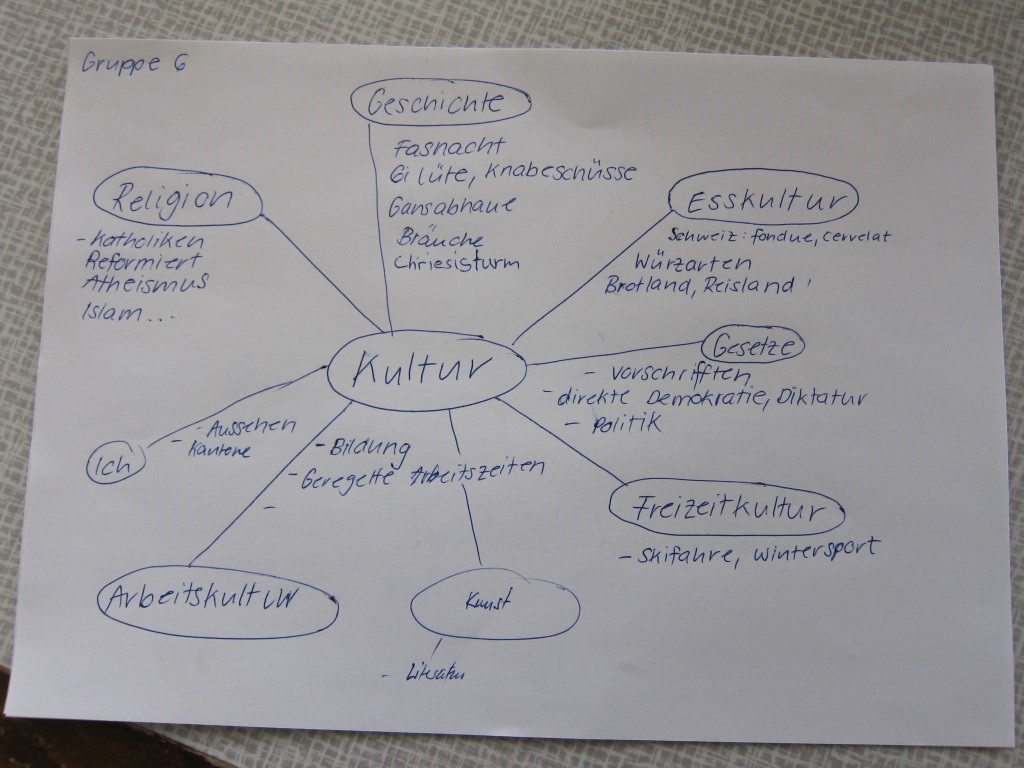 Gruppe 6
Geschichte
Fasnacht
Gi lüte, Knabeschüsse
Gansabhaue
Bräuche
Chriesisturm
Religion
- Katholiken
Reformiert
Atheismus
Islam...
Esskultur
Schweiz: fondue, Cervelat
Würzarten
Brotland, Reisland
Kultur
Gesetze
- Vorschrifften
- direkte Demokratie, Diktatur
- Politik
Ich
- Aussehen
- Kantone
- Bildung
- Geregelte Arbeitszeiten
-
Freizeitkultur
- Skifahre, Wintersport
Arbeitskultur
Kunst
- Literatur